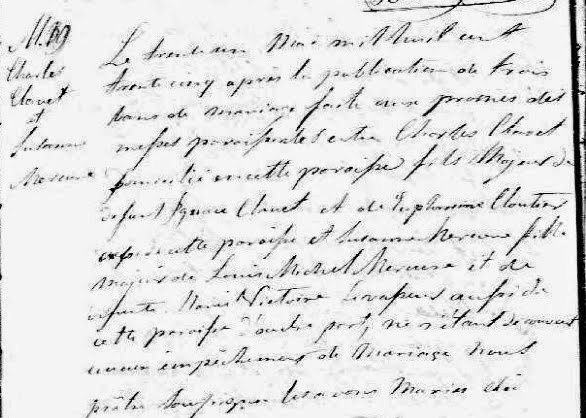 M. 39
Charles
Clouet
et
Susanne
Mercure
Le trente un Mai mil huit cent
trente cinq après la publication de trois
bans de mariage faite aux prones des
messes paroissiales entre Charles Clouet
domicilié en cette paroisse fils Majeur de
defunt Ignace Clouet et de Euphrosine Cloutier
cette paroisse et Susanne Mercure fille
majeure de Louis Michel Mercure et de
defunte Marie Victoire Levasseur aussi de
cette paroisse d'autre part, ne s'étant découvert
aucun empêchement de Mariage Nous
prêtre soussigné les avons Mariés